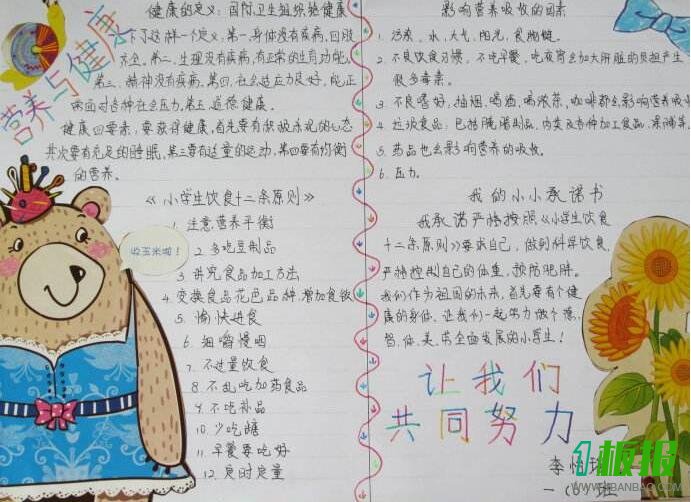 营养与健康
健康的定义：国际卫生组织给健康
下了这样一个定义。第一、身体没有疾病，四肢
齐全。第二、生理没有疾病，有正常的生育功能。
第三、精神没有疾病。第四、社会适应力良好，能正
确面对各种社会压力。第五、道德健康。
健康四要素：要获得健康，首先要有积极乐观的心态
其次要有充足的睡眠，第三要有适量的运动，第四要有均衡
的营养。
《小学生饮食十二条原则》
1. 注意营养平衡
2. 多吃豆制品
3. 讲究食品加工方法
4. 变换食品花色品种，增加食欲
5. 愉快进食
6. 细嚼慢咽
7. 不过量饮食
8. 不乱吃加药食品
9. 不吃补品
10. 少吃糖
11. 早餐要吃好
12. 定时定量
收玉米啦！
影响营养吸收的因素
1. 污染，水、大气、阳光、食物链。
2. 不良饮食习惯，不吃早餐，吃夜宵会加大肝脏的负担产生
很多毒素。
3. 不良嗜好，抽烟、喝酒、喝浓茶、咖啡都会影响营养吸收
4. 垃圾食品：包括腌腊制品，肉类及各种加工食品，果脯等
5. 药品也会影响营养的吸收。
6. 压力。
我的小小承诺书
我承诺严格按照《小学生饮食
十二条原则》要求自己，做到科学饮食，
严格控制自己的体重，预防肥胖。
我们作为祖国的未来，首先要有个健
康的身体，让我们一起努力做个德、
智、体、美、劳全面发展的小学生！
让我们
共同努力
李
一（6）班
板报
WWW.1BANBAO.COM